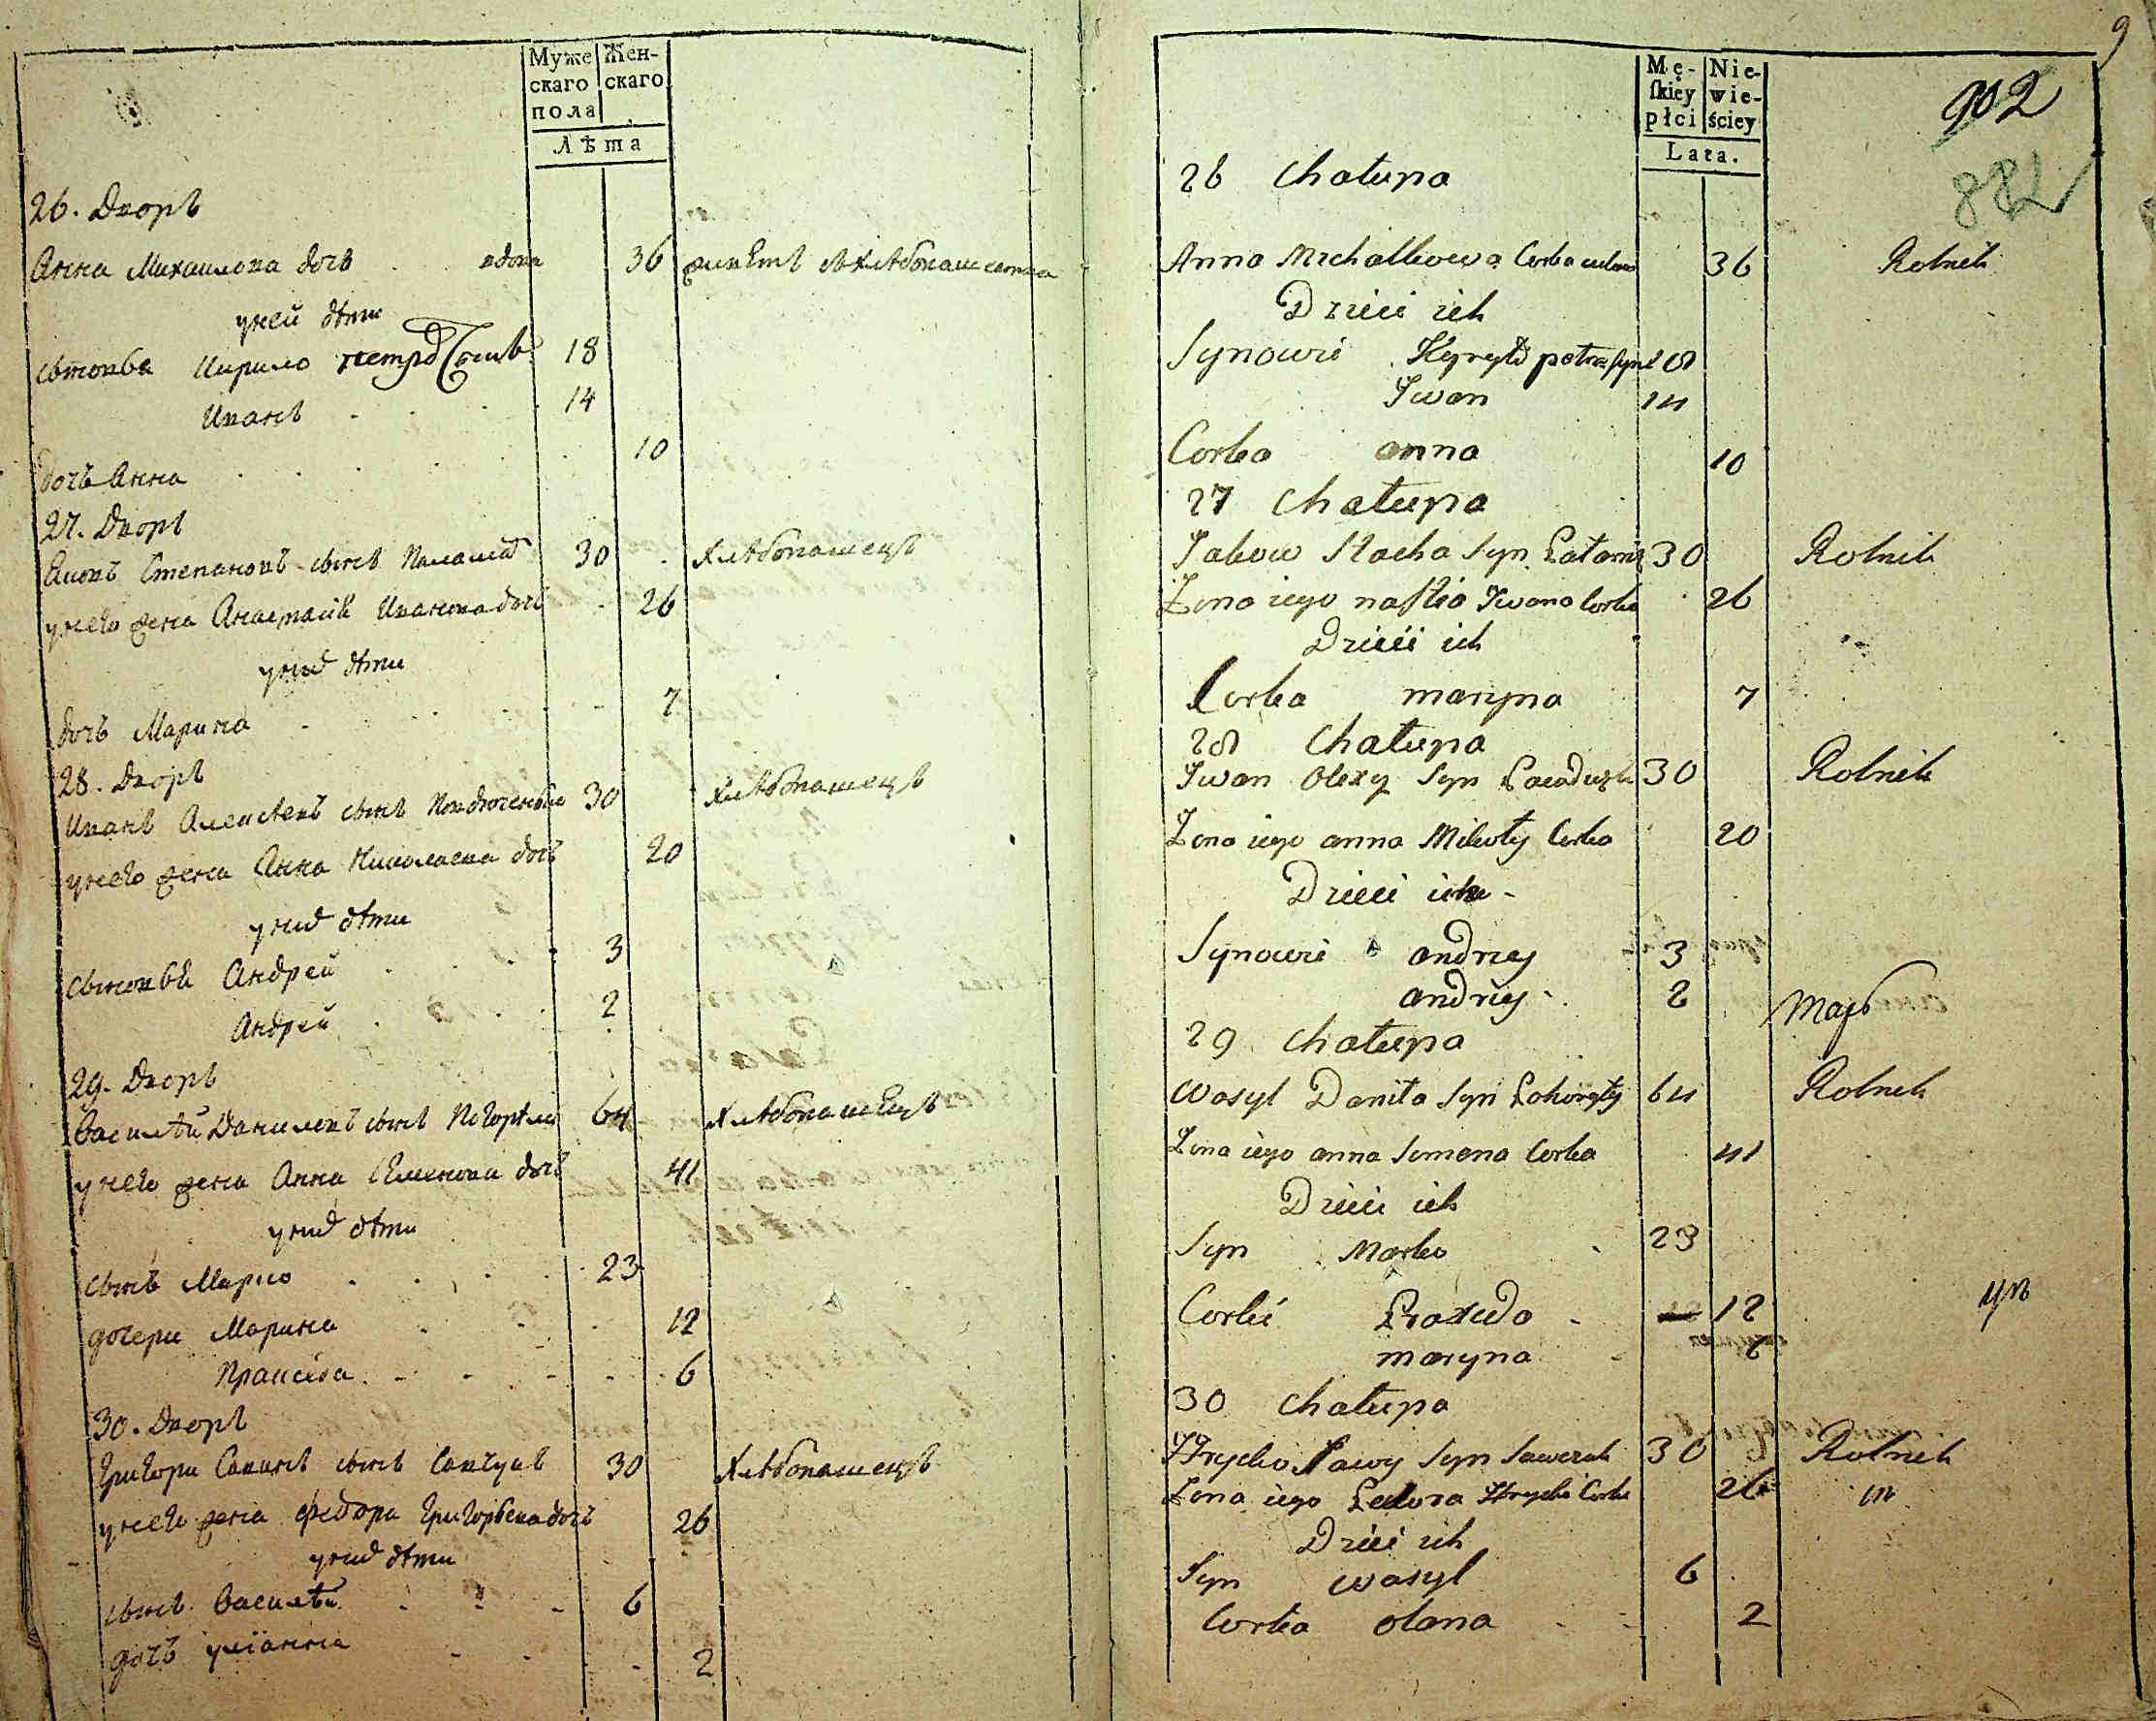 Муже Жен-
скаго скаго
пола
Лѣта
26. Дворъ
Анна Михаилова дочь . . вдова 36
у ней дѣти
сыновья Кирило петро 18
Иванъ . . . 14
дочь Анна . . . 10
27. Дворъ
Яковъ Степановъ сынъ 30 . хлѣбопашецъ
у него жена Анастасия Иванова дочь . 26
у них дѣти
дочь Марина . . . 7
28. Дворъ
Иванъ Алексѣевъ сынъ 30 хлѣбопашецъ
у него жена Анна Николаева дочь 20
у них дѣти
сыновья Андрей . . . 3
Андрей . . . 2
29. Дворъ
Василѣй Даниловъ сынъ Погорѣли 64 хлѣбопашецъ
у него жена Анна Семенова дочь 41
у них дѣти
сынъ Марко . . . 23
дочери Марина . . . 12
Праксѣда . . . 6
30. Дворъ
Григори Савинъ сынъ Савчукъ 30 хлѣбопашецъ
у него жена Федора Григорьева дочь 26
у них дѣти
сынъ Василѣй . . . 6
дочь улианна . . . 2
9
Mę- Nie-
ſkiey wie-
płci ściey
Lata.
902
882
26 Chałupa
Anna Michałkowa Corka wdowa 36 Rolnik
Dzieci ich
Synowie Kyryło petra syn 18
Iwan 14
Corka anna 10
27 Chałupa
Jakow Stacha Syn 30 Rolnik
Zona iego nastia Iwana Corka 26
Dzieci ich
Corka maryna 7
28 Chałupa
Iwan Olexy Syn 30 Rolnik
Zona iego anna Mikoły Corka 20
Dzieci ich -
Synowie andrzey 3
andrzey 2
29 Chałupa
Wasyl Daniła Syn Pohoryły 64 Rolnik
Zona iego anna Semena Corka 41
Dzieci ich
Syn Marko 23
Corki Praxeda - 12
maryna 6
30 Chałupa
Hrycko Sawy Syn Sawczuk 30 Rolnik
Zona iego Fedora Hrycka Corka 26
Dzieci ich
Syn wasyl 6
Corka olana 2